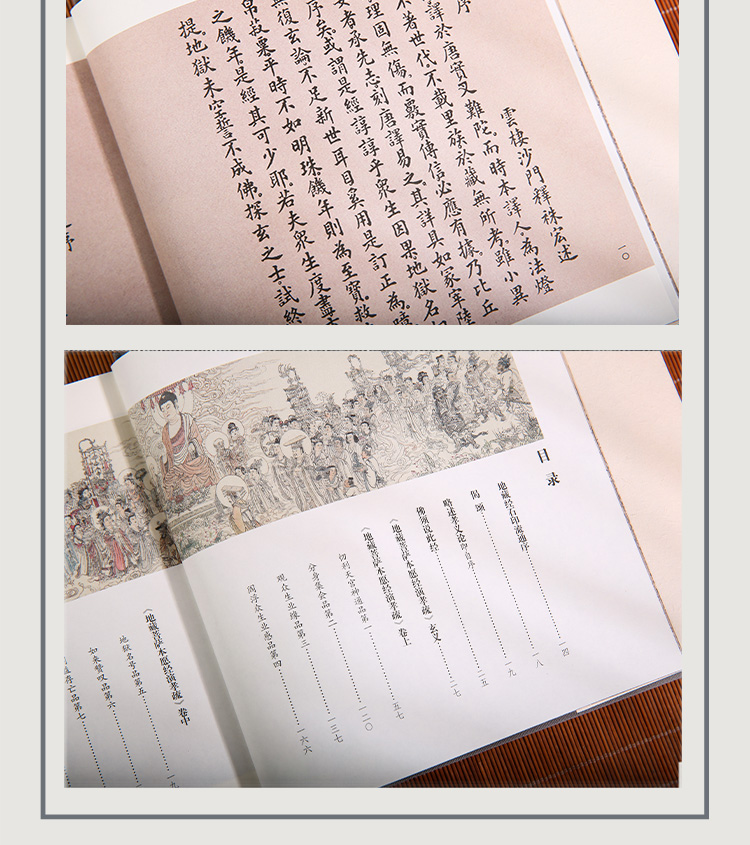 序 雲棲沙門釋袾宏述
一〇
譯於唐實叉難陀。而時本譯人。為法燈
不著世代。不載里族。於藏無所考。雖小異
理固無傷。而覈實傳信。必應有據。乃比丘
者承先志。刻唐譯易之。其詳具如冢宰陸
序矣。或謂是經諄諄乎眾生因果地獄名
無復玄論。不足新世耳目。奚用是訂正為。
帛菽粟。平時不如明珠。饑年則為至寶。救
之饑年。是經其可少耶。若夫眾生度盡
提。地獄未空。誓不成佛。探玄之士。試終
序
目录
地藏经石印流通序 一四
偈颂 一八
略述孝义论 印自序 一九
佛须说此经 二五
《地藏菩萨本愿经演孝疏》玄义 二七
《地藏菩萨本愿经演孝疏》卷上 五七
忉利天宫神通品第一 一二〇
分身集会品第二 一三七
观众生业缘品第三
阎浮众生业感品第四 一六六
《地藏菩萨本愿经演孝疏》卷中
地狱名号品第五
如来赞叹品第六
存亡品第七